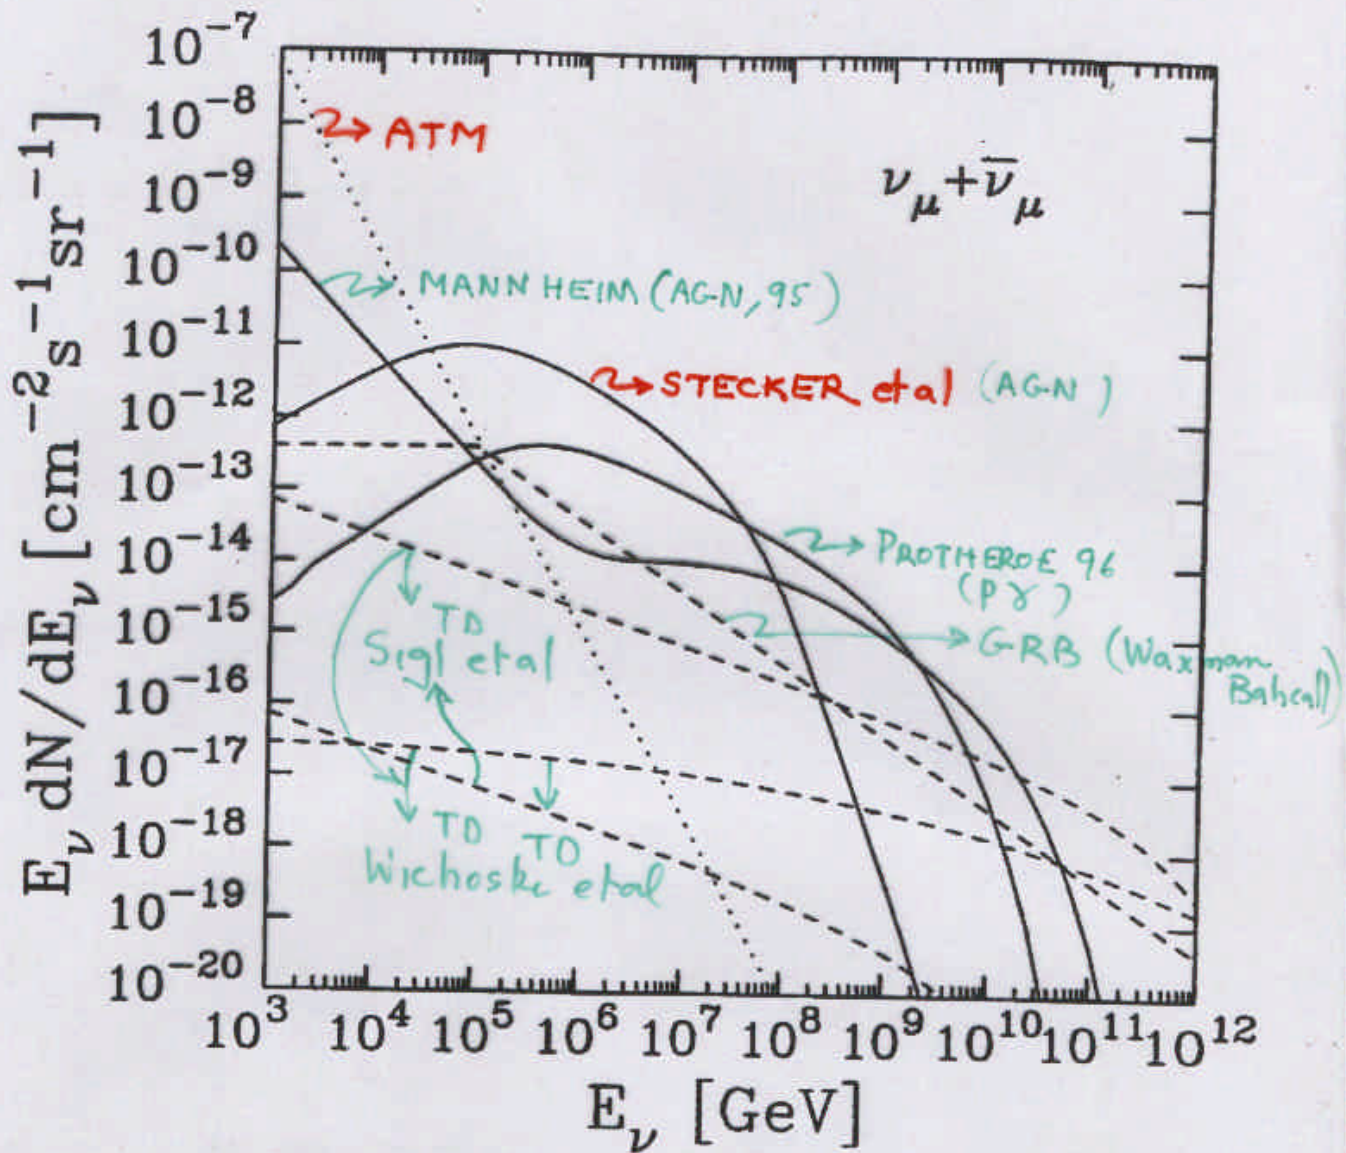 10^-7
10^-8
10^-9
10^-10
10^-11
10^-12
10^-13
10^-14
10^-15
10^-16
10^-17
10^-18
10^-19
10^-20
E_ν dN/dE_ν [cm^-2 s^-1 sr^-1]
ATM
ν_μ + ν̅_μ
MANNHEIM (AGN, 95)
STECKER et al (AGN)
PROTHEROE 96
(pγ)
GRB (Waxman
Bahcall)
TD
Sigl et al
TD TD
Wichoski et al
10^3 10^4 10^5 10^6 10^7 10^8 10^9 10^10 10^11 10^12
E_ν [GeV]